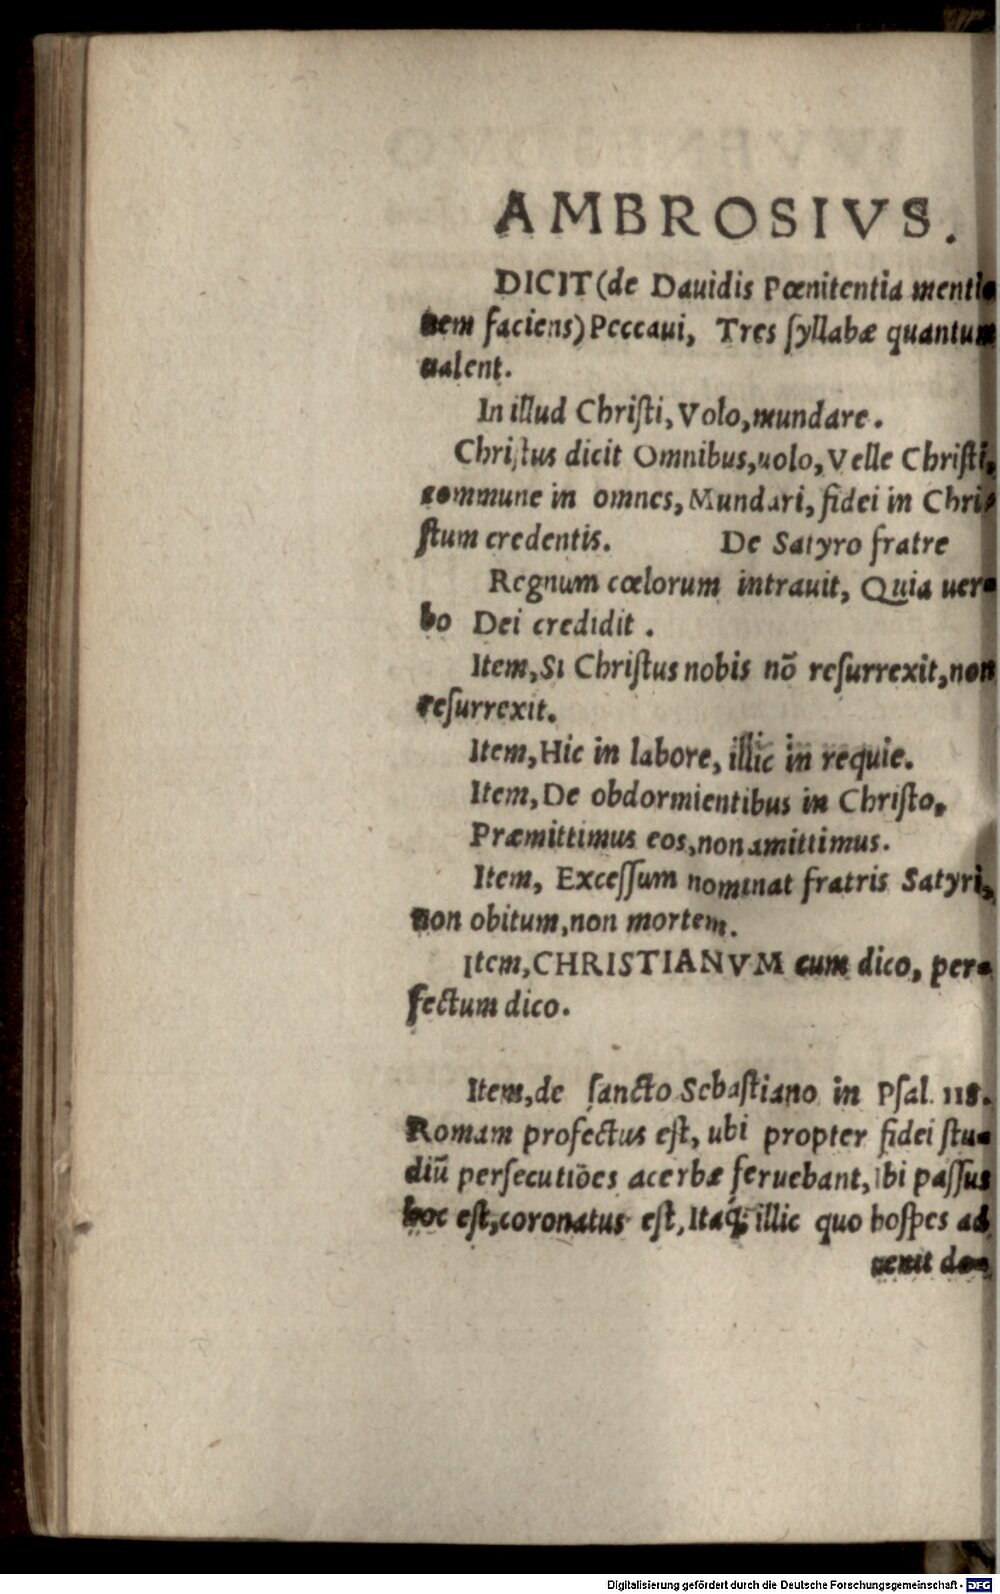 AMBROSIVS.
DICIT (de Dauidis Pœnitentia mentio
nem faciens) Peccaui, Tres ſyllabæ quantum
ualent.
In illud Chriſti, Volo, mundare.
Chriſtus dicit Omnibus, uolo, Velle Chriſti,
commune in omnes, Mundari, fidei in Chri-
ſtum credentis. De Satyro fratre
Regnum cœlorum intrauit, Quia uer-
bo Dei credidit.
Item, Si Chriſtus nobis nō reſurrexit, non
reſurrexit.
Item, Hic in labore, illic in requie.
Item, De obdormientibus in Chriſto,
Præmittimus eos, non amittimus.
Item, Exceſſum nominat fratris Satyri,
non obitum, non mortem.
Item, CHRISTIANVM cum dico, per-
fectum dico.
Item, de ſancto Sebaſtiano in Pſal. 118.
Romam profectus eſt, ubi propter fidei ſtu-
diū perſecutiōes acerbæ feruebant, Ibi paſſus
hoc eſt, coronatus eſt, Itaq; illic quo hoſpes ad
uenit do-
Digitalisierung gefördert durch die Deutsche Forschungsgemeinschaft - DFG